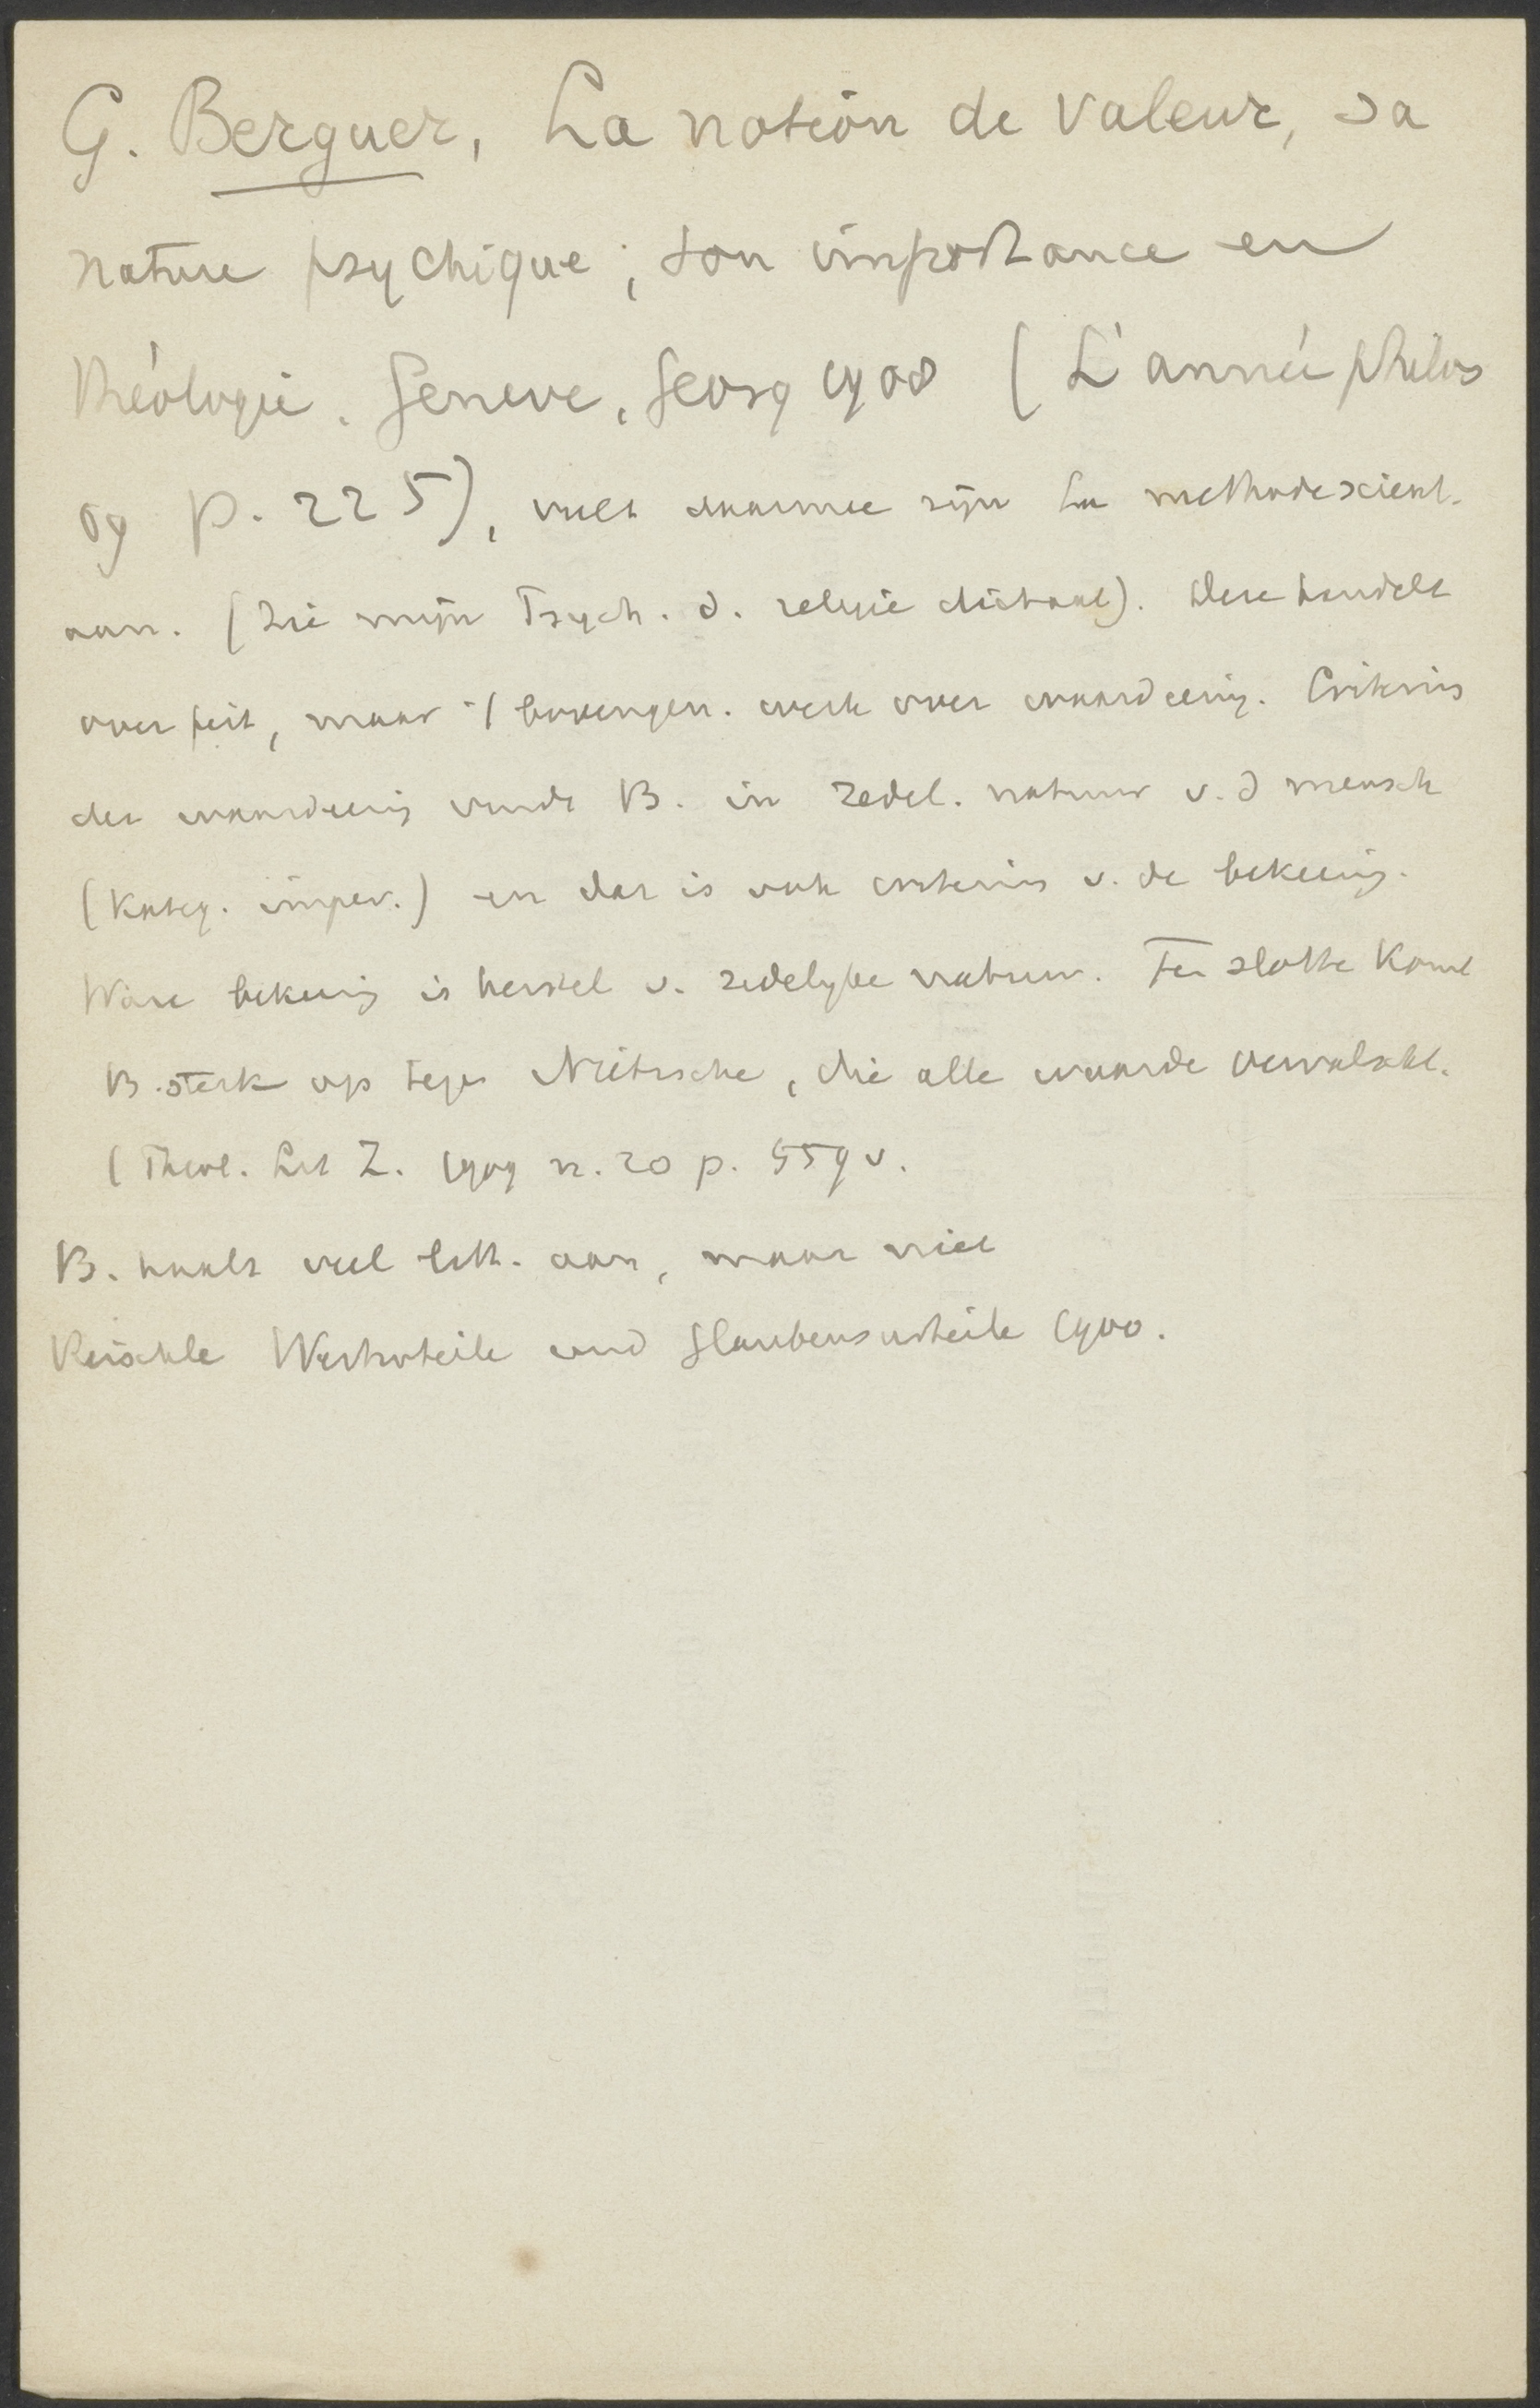 G. Berguer, La notion de valeur, sa
nature psychique; son importance en
théologie. Geneve, Georg 1908 (L'année philos
09 p. 225), vult daarmee zijn La methode scient.
aan. (Zie mijn Psych. d. religie dictaat). Deze handelt
over feit, maar 't bovengen. werk over waardeering. Criterium
der waardeering vindt B. in zedel. natuur v. d mensch
(Kateg. imper.) en dat is ook criterium v. de bekeering.
Ware bekeering is herstel v. zedelijke natuur. Ten slotte komt
B. sterk op tegen Nietzsche, die alle waarde vervalscht.
(Theol. Lit Z. 1909 n. 20 p. 559 v.
B. haalt veel litt. aan, maar niet
Reischle Werturteile und Glaubensurteile 1900.